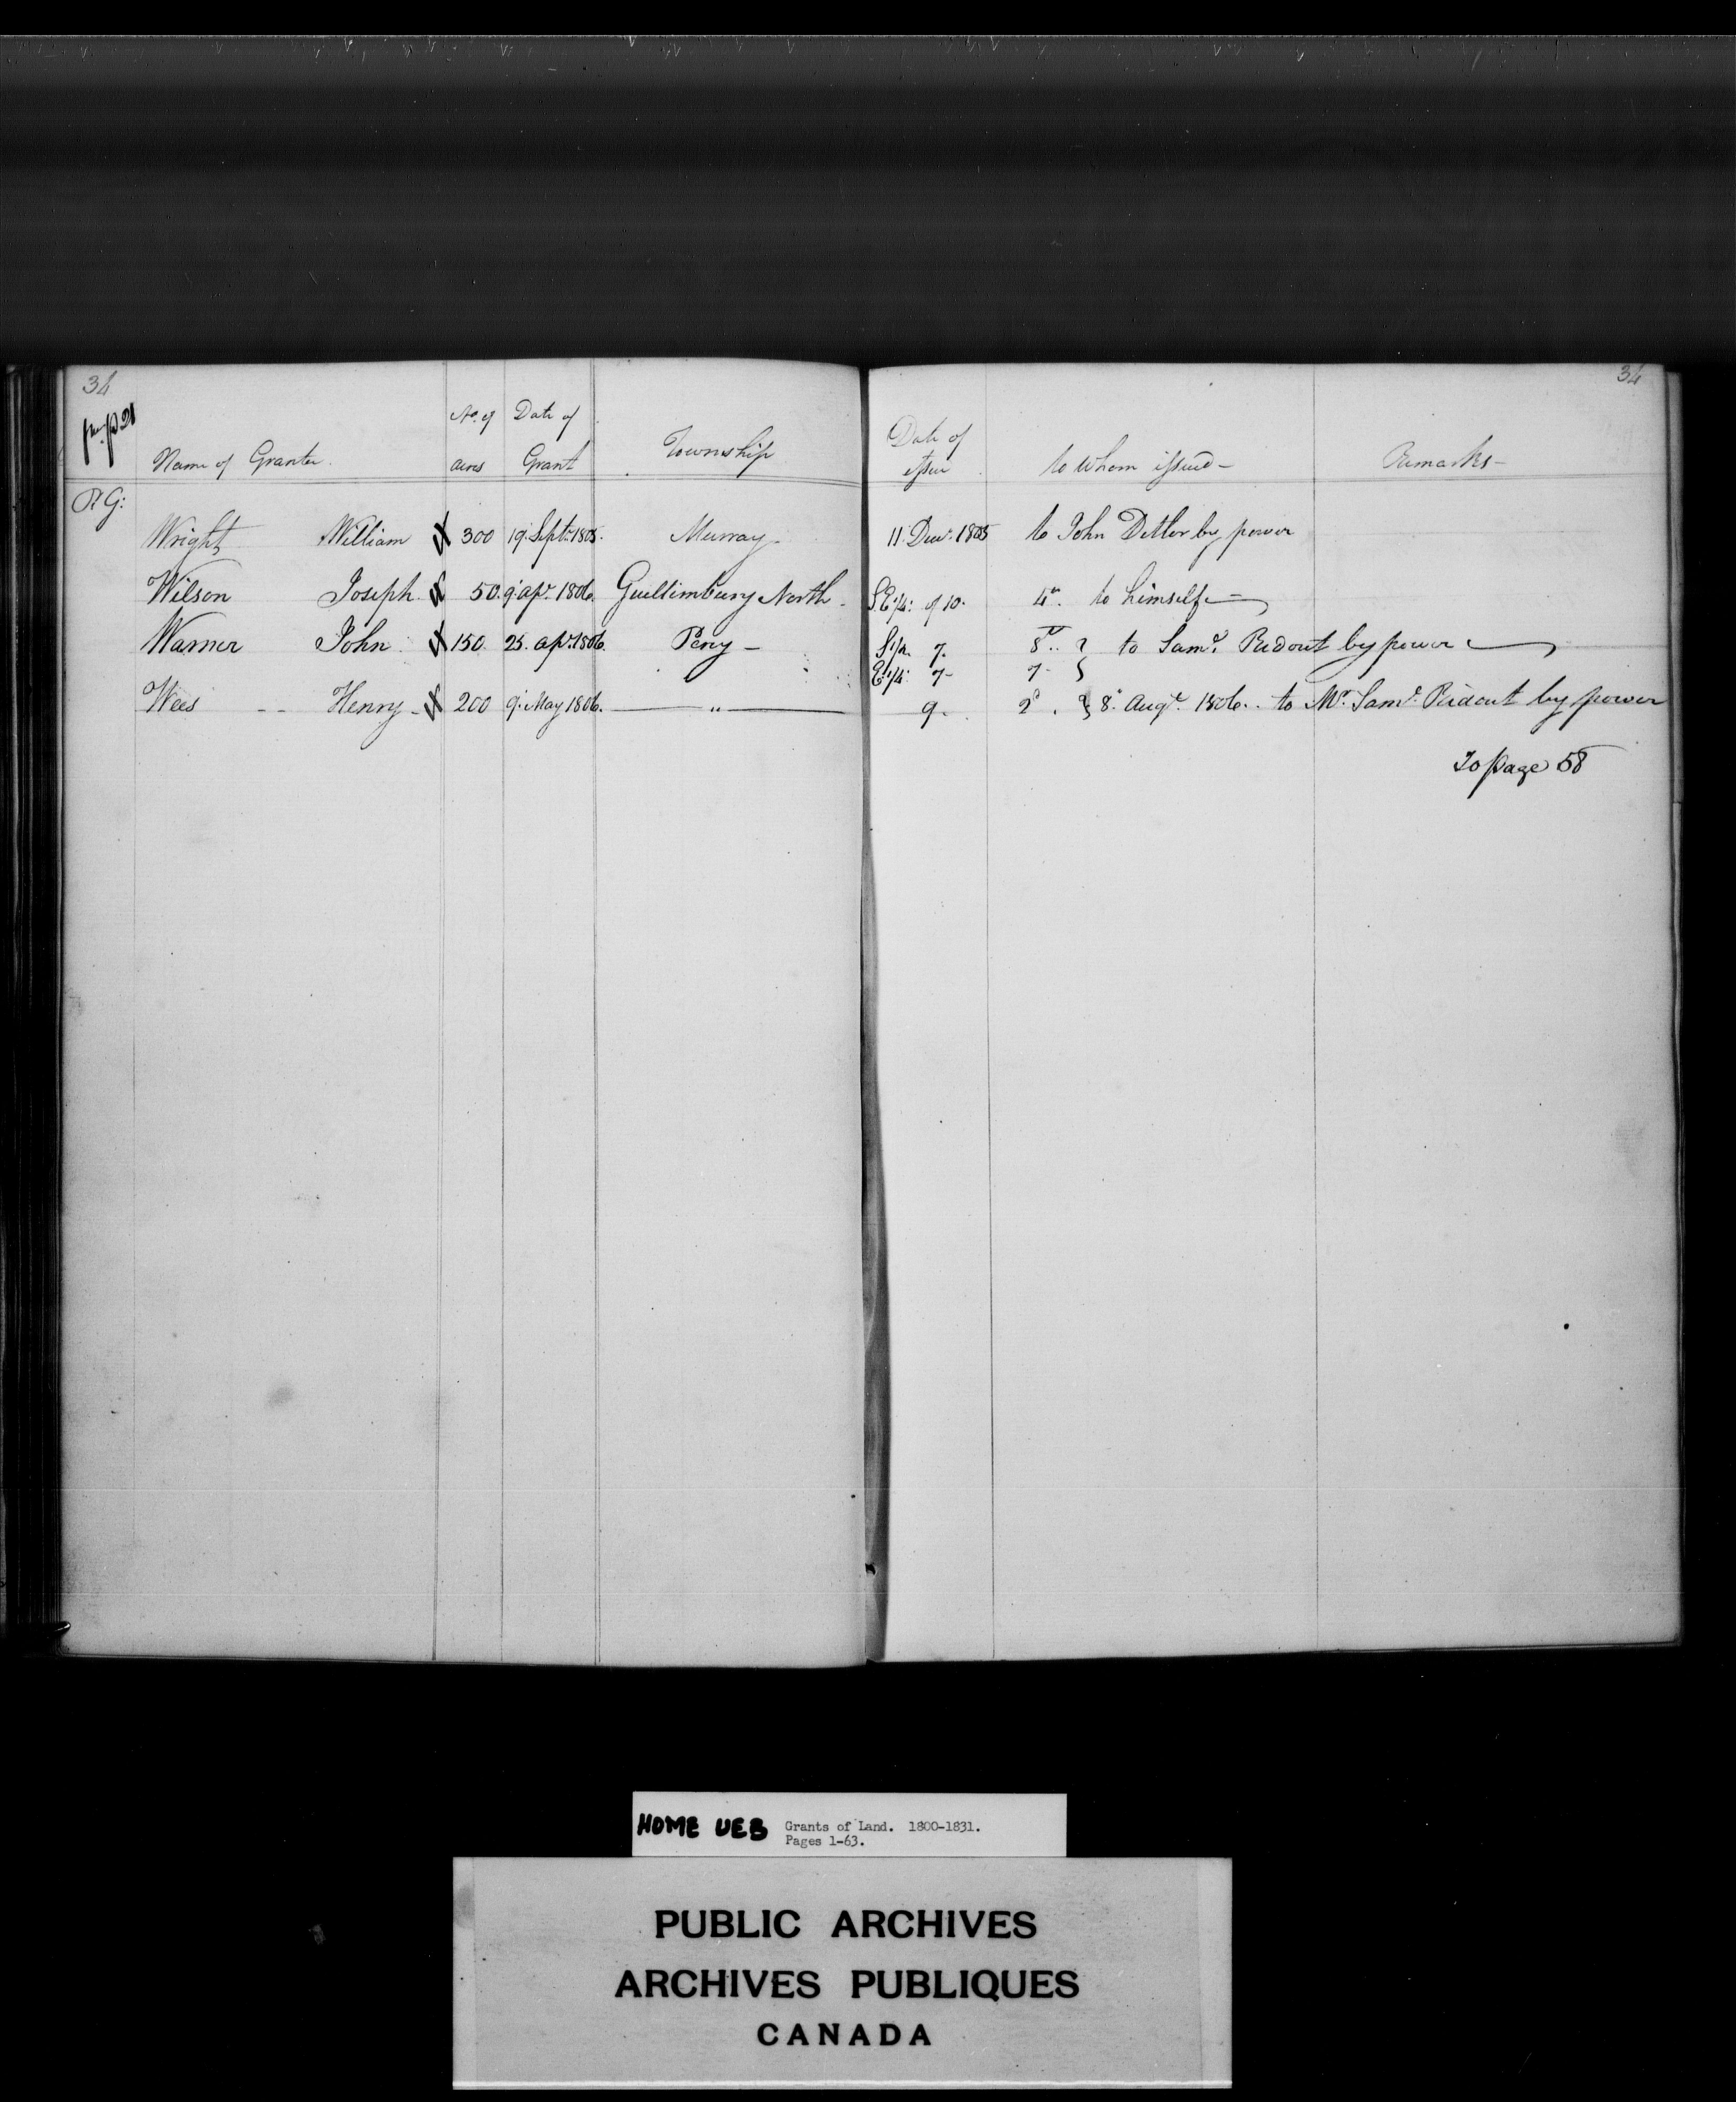 34
34
from p 21
Name of Grantee.
No. of acres
Date of Grant
Township
Date of issue
to whom issued -
Remarks -
P. G:
Wright William 300 19. Septr. 1805. Murray - 11. Decr. 1805 to John Detlor by power
Wilson Joseph 50. 9. apr. 1806. Guillimbury North - S.E. 1/4: of 10. 4th. to himself -
Warner John 150. 25. apr. 1806. Percy - S 1/2. 7. 8th.. } to Saml. Ridout by power
E 1/4: 7 - 7 - }
Wees - - Henry - 200 9. May 1806. " 9 - 2d. } 8. Augt. 1806. to Mr. Saml. Ridout by power
To page 58
HOME UEB Grants of Land. 1800-1831.
Pages 1-63.
PUBLIC ARCHIVES
ARCHIVES PUBLIQUES
CANADA